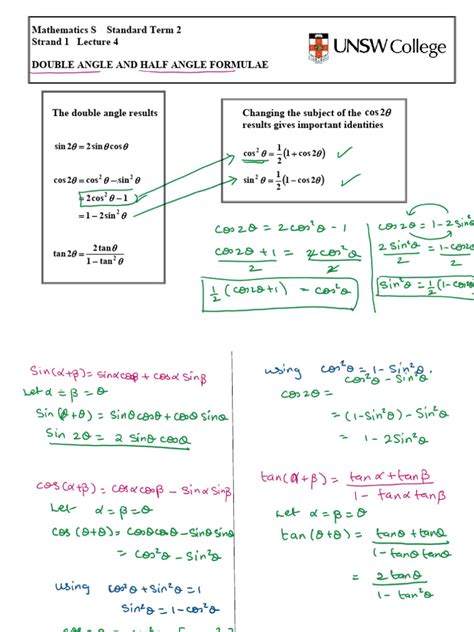 Mathematics S Standard Term 2
Strand 1 Lecture 4
DOUBLE ANGLE AND HALF ANGLE FORMULAE
UNSW College
The double angle results
sin 2θ = 2 sin θ cos θ
cos 2θ = cos² θ – sin² θ
= 2cos² θ – 1
= 1 – 2sin² θ
tan 2θ = 2 tan θ / 1 – tan² θ
Changing the subject of the cos 2θ
results gives important identities
cos² θ = 1/2 (1 + cos 2θ) ✓
sin² θ = 1/2 (1 – cos 2θ) ✓
cos2θ = 2cos²θ - 1
cos2θ + 1 / 2 = 2cos²θ / 2
1/2 (cos2θ + 1) = cos²θ
cos2θ = 1 - 2sin²θ
2sin²θ / 2 = 1 - cos2θ / 2
sin²θ = 1/2 (1 - cos
Sin(α+β) = sinα cosβ + cosα sinβ
Let α = β = θ
Sin (θ+θ) = sinθ cosθ + cosθ sinθ
Sin 2θ = 2 sinθ cosθ
cos(α+β) = cosα cosβ - sinα sinβ
Let α = β = θ
cos (θ+θ) = cosθ cosθ - sinθ sinθ
= cos²θ - sin²θ
using cos²θ + sin²θ = 1
sin²θ = 1 - cos²θ
using cos²θ = 1 - sin²θ.
cos2θ = cos²θ - sin²θ
= (1 - sin²θ) - sin²θ
= 1 - 2sin²θ
tan(α+β) = tanα + tanβ / 1 - tanα tanβ
Let α = β = θ
tan (θ+θ) = tanθ + tanθ / 1 - tanθ tanθ
= 2 tanθ / 1 - tan²θ